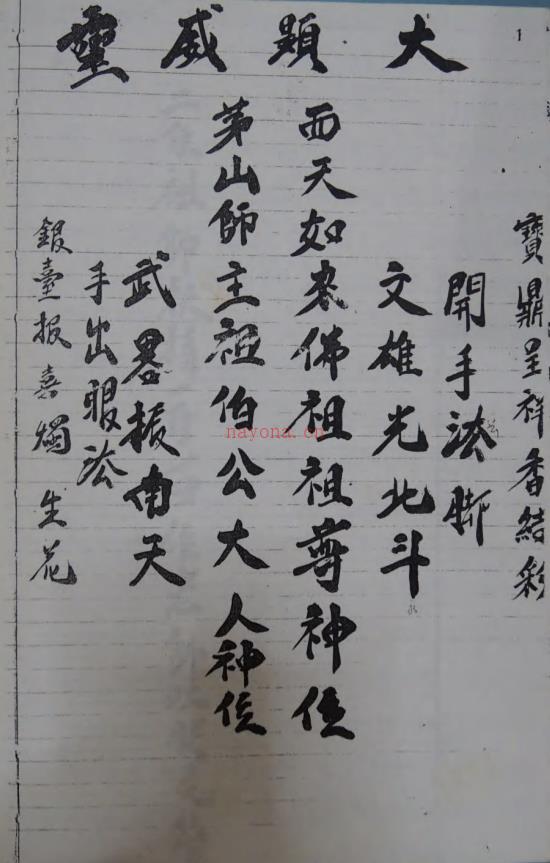 大顕威靈
寶鼎呈祥香結彩
開手法腳
文雄光北斗
西天如來佛祖祖尊神位
茅山師主祖伯公大人神位
武畧振南天
手出眼法
銀臺报喜燭生花
nayona.cn